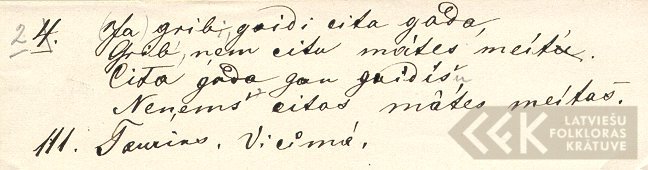 2 4. (Ja) gribi, gaidi cita gada,
Gribi, nem citu mātes meitu.
Cita gada gan gaidīšu
Neņemš' citas mātes meitas.
111. Tauriņš. Vijciemā.
LATVIEŠU
FOLKLORAS
KRĀTUVE